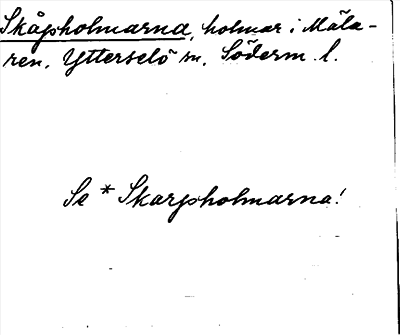 Skåpsholmarna, holmar i Mäla-
ren, Ytterselö sn, Söderm. l.
Se * Skarpholmarna!